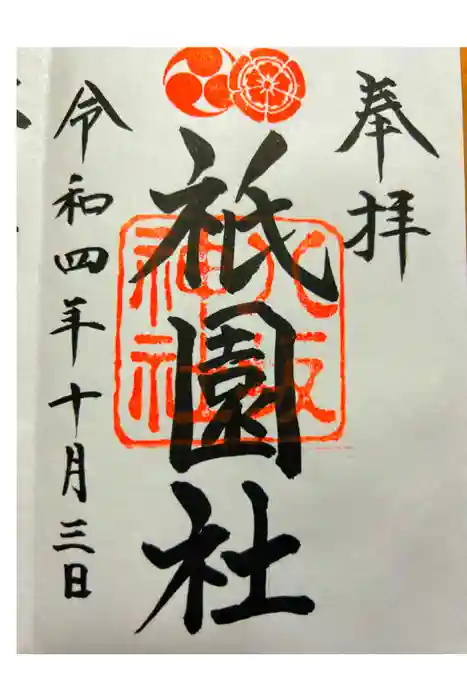 奉拝
八坂
神社
祇園社
令和四年十月三日